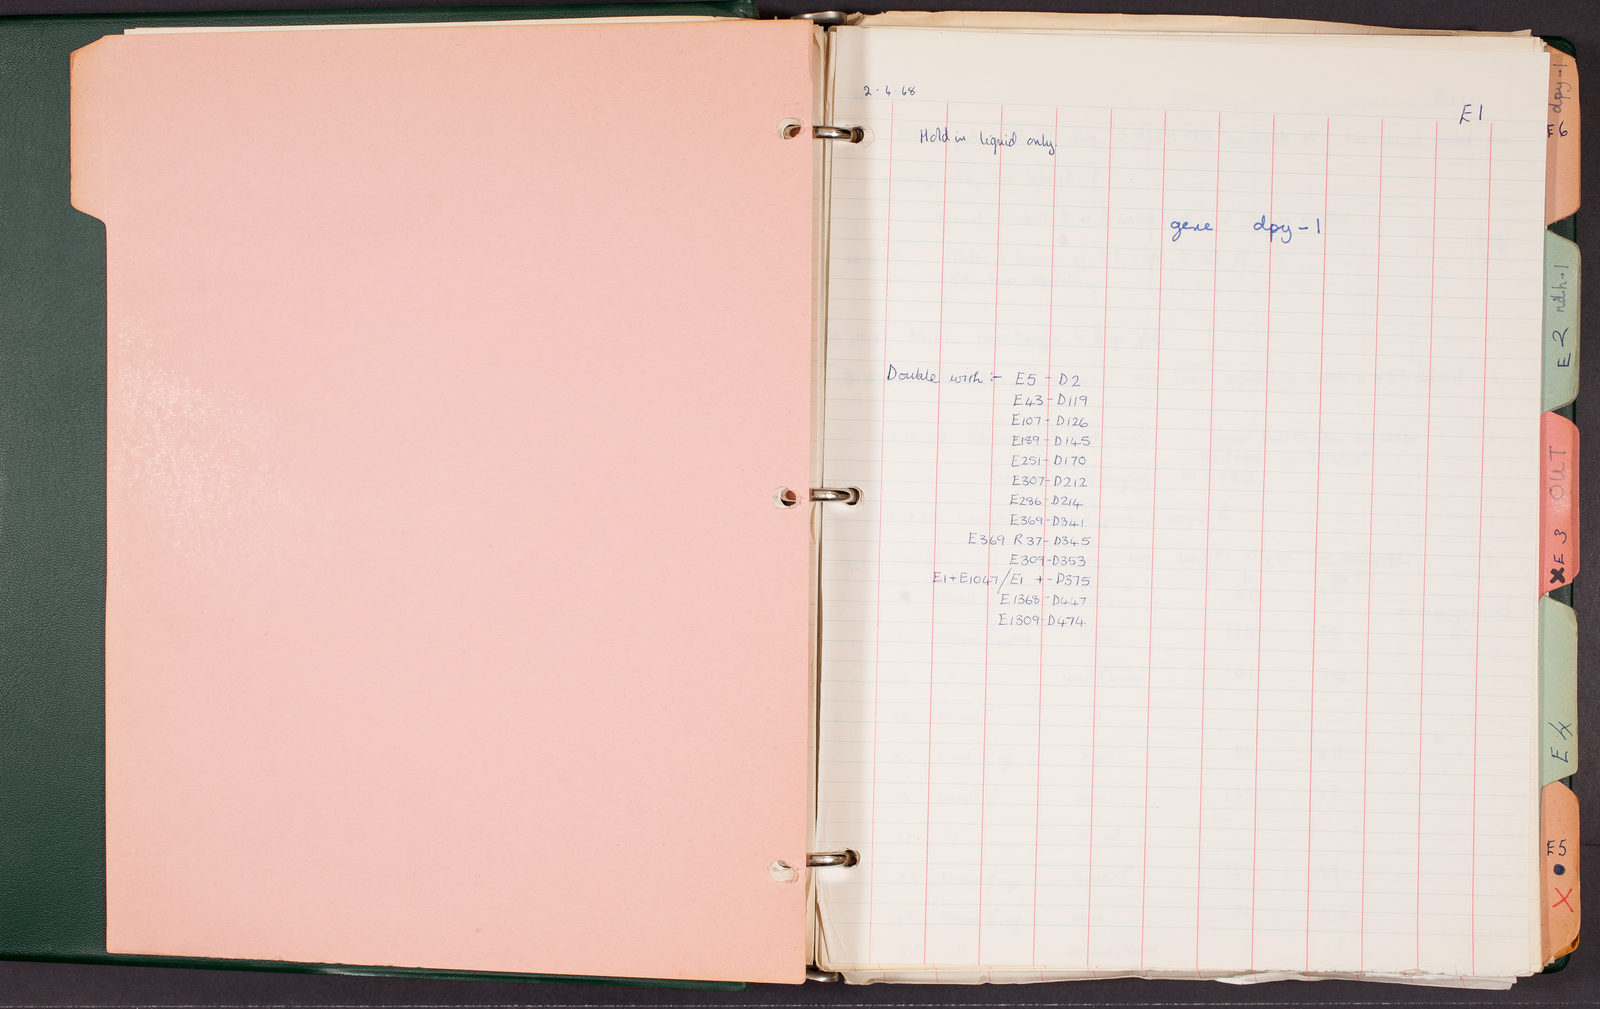 2.4.68
E1
Hold in liquid only.
gene dpy-1
Double with :- E5 - D2
E43 - D119
E107 - D126
E189 - D145
E251 - D170
E307 - D212
E286 - D214
E369 - D341
E369 R37 - D345
E309 - D353
E1+E1047/E1 + - D375
E1368 - D447
E1309 - D474
E6 dpy-1
E2
XE 3 OUT
E5
X